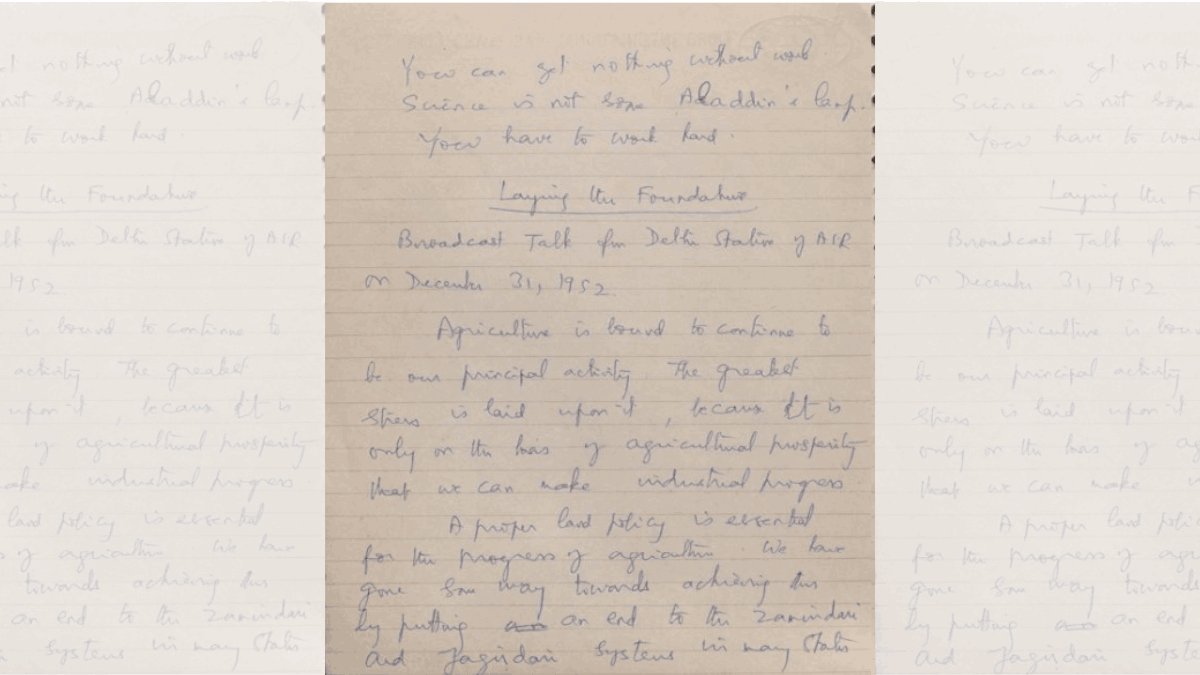 You can get nothing without work
Science is not some Aladdin's lamp.
You have to work hard.
Laying the Foundation
Broadcast Talk from Delhi Station of AIR
on December 31, 1952.
Agriculture is bound to continue to
be our principal activity. The greatest
stress is laid upon it, because It is
only on the basis of agricultural prosperity
that we can make industrial progress
A proper land policy is essential
for the progress of agriculture. We have
gone some way towards achieving this
by putting an end to the Zamindari
and Jagirdari systems in many States